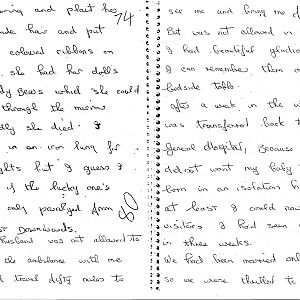 ning and plait her
74
hair and put
colored ribbons on
she had her dolls
dy Bears which she could
through the mirror
dly she died. I
in an iron lung for
ghts but I guess I
of the lucky one's
only paralyzed from
Downwards.
husband was not allowed to
the ambulance with me
travel fifty miles to
see me and bring me
But was not allowed in
I had beautiful gladioli
I can remember them
bedside table.
after a week in the
was transferred back to
general Hospital, because
did not want my baby
born in an isolation h
at least I could now
visitors I had seen
in three weeks.
We had been married only
so we were thrilled to